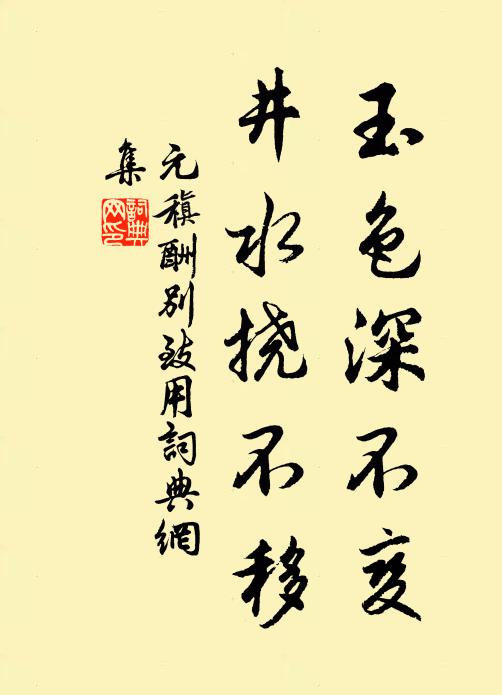 玉色深不变
井水挠不移
元稹酬别致用詞典網
集
詞典
网印